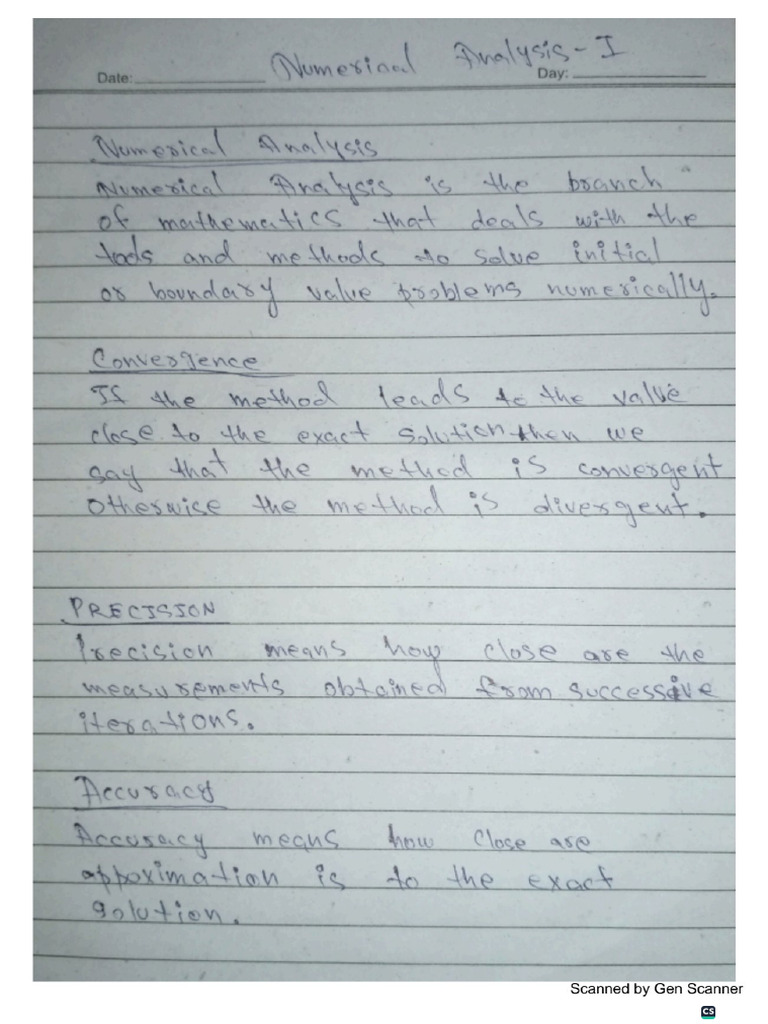 Numerical Analysis - I
Date: Day:
Numerical Analysis
Numerical Analysis is the branch
of mathematics that deals with the
tools and methods to solve initial
or boundary value problems numerically.
Convergence
If the method leads to the value
close to the exact solution then we
say that the method is convergent
otherwise the method is divergent.
PRECISION
Precision means how close are the
measurements obtained from successive
iterations.
Accuracy
Accuracy means how close are
appoximation is to the exact
solution.
Scanned by Gen Scanner
CS